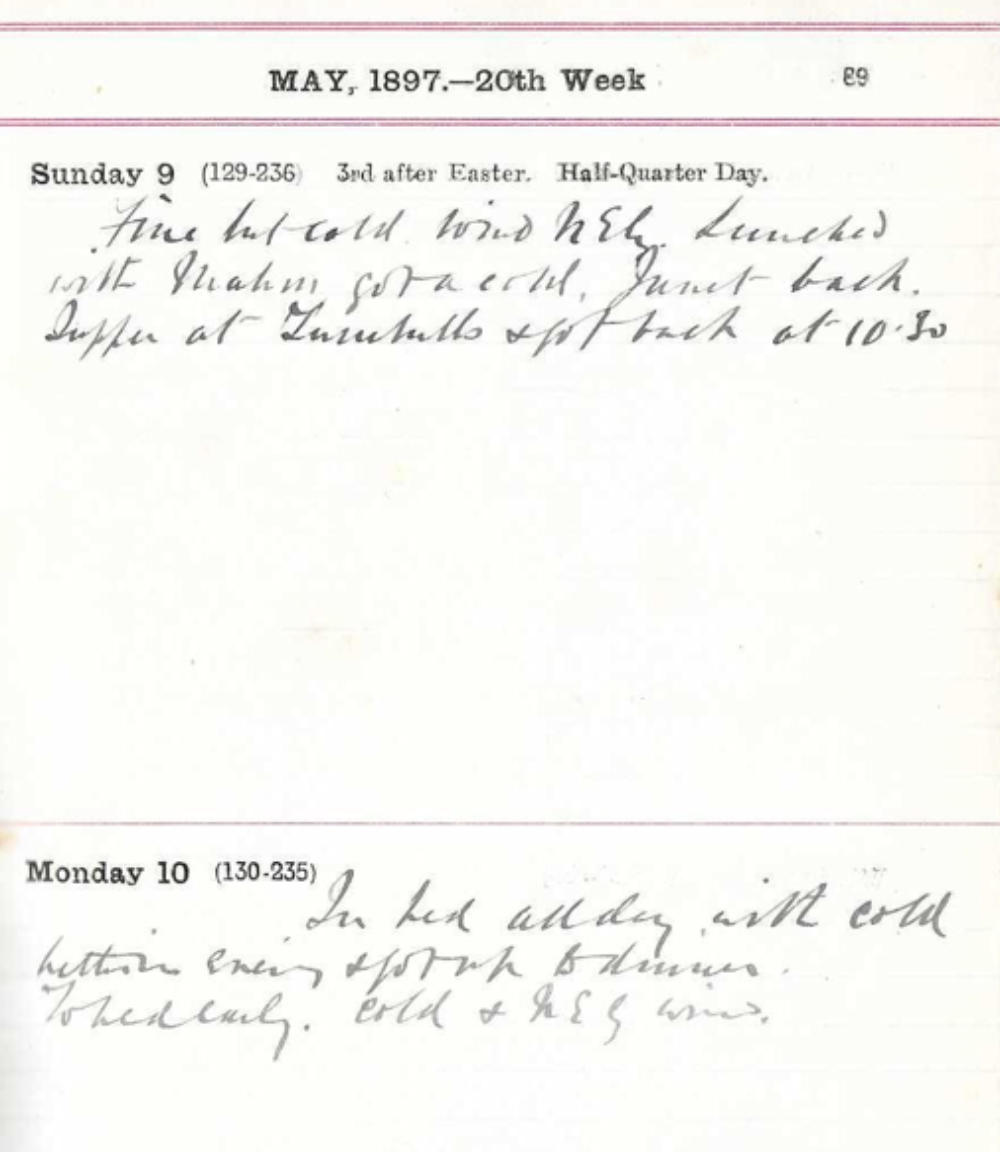 MAY, 1897.—20th Week 89
Sunday 9 (129-236) 3rd after Easter. Half-Quarter Day.
Fine but cold wind NEly. Lunched
with got a cold, Janet back.
Supper at Turnbulls & got back at 10.30
Monday 10 (130-235)
In bed all day with cold
better in evening & got up to dinner.
To bed early. Cold & NEly wind.